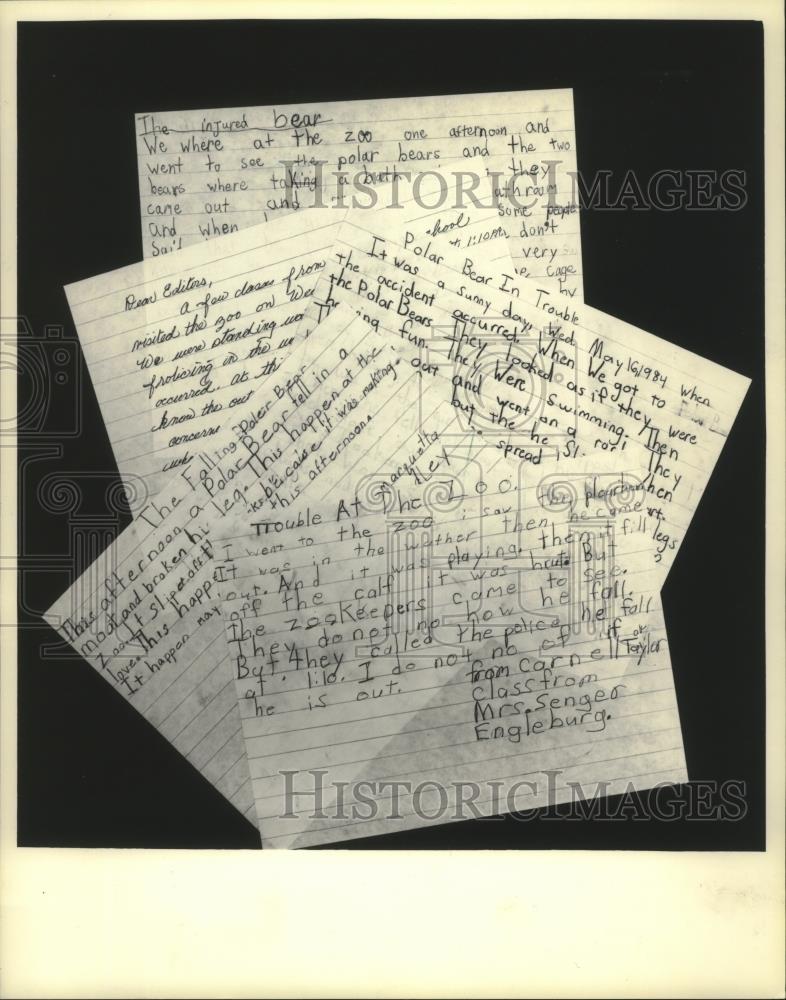 The injured bear
We where at the zoo one afternoon and
went to see the polar bears and the two
bears where taking a bath they
came out and athroom
and when some people
said don't
very
cage
by
Dear Editors,
a few classes from
visited the zoo on Wed
We were standing
frolicing in the
occurred. at thi
know the out
concerne
hool
at 1:10 PM
Polar Bear In Trouble
It was a sunny day, Wed. May 16, 1984 when
the accident occurred. When We got to
the Polar Bears They looked as if they were
having fun. They Were swimming. Then
out and went on a They
but the he
spread
The Falling Polar Bear
This afternoon a Polar Bear fell in a
moat and broken hi leg. This happen at the
Zoo. it slipe off because it was making
love This happe this afternoon.
It happen may
Marquetta
lley
Trouble At The Zoo.
I went to the zoo i saw the plourbear
It was in the wather then he came
out. And it was playing. then it fill
off the calf it was hrut. But
the zookeepers came to see.
They do not no how he fall.
But they called the police he fall
at 1:10. I do not no of if
he is out.
from Carnell Taylor
class from
Mrs. Senger
Engleburg.
HISTORIC IMAGES
HISTORIC IMAGES